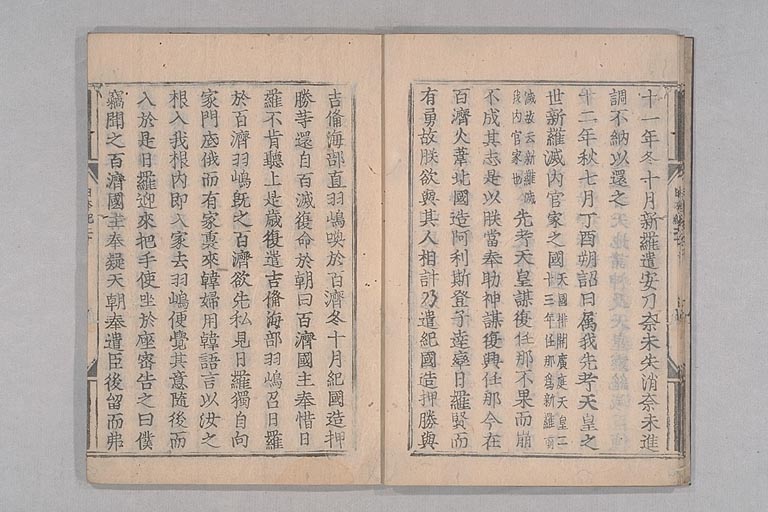 十一年冬十月新羅遣安刀奈末失消奈末進
調不納以還之
十二年秋七月丁酉朔詔曰属我先考天皇之
世新羅滅内官家之國天國排開廣庭天皇二十三年任那爲新羅所
滅故云新羅滅我内官家也先考天皇謀復任那不果而崩
不成其志是以朕當奉助神謀復興任那今在
百濟火葦北國造阿利斯登子達率日羅賢而
有勇故朕欲與其人相計乃遣紀國造押勝與
吉備海部直羽嶋喚於百濟冬十月紀國造押
勝等還自百濟復命於朝曰百濟國主奉惜日
羅不肯聽上是歳復遣吉備海部羽嶋召日羅
於百濟羽嶋既之百濟欲先私見日羅獨自向
家門底俄而有家裏來韓婦用韓語言以汝之
根入我根内即入家去羽嶋便覺其意随後而
入於是日羅迎來把手使坐於座密告之曰僕
竊聞之百濟國主奉疑天朝奉遣臣後留而弗